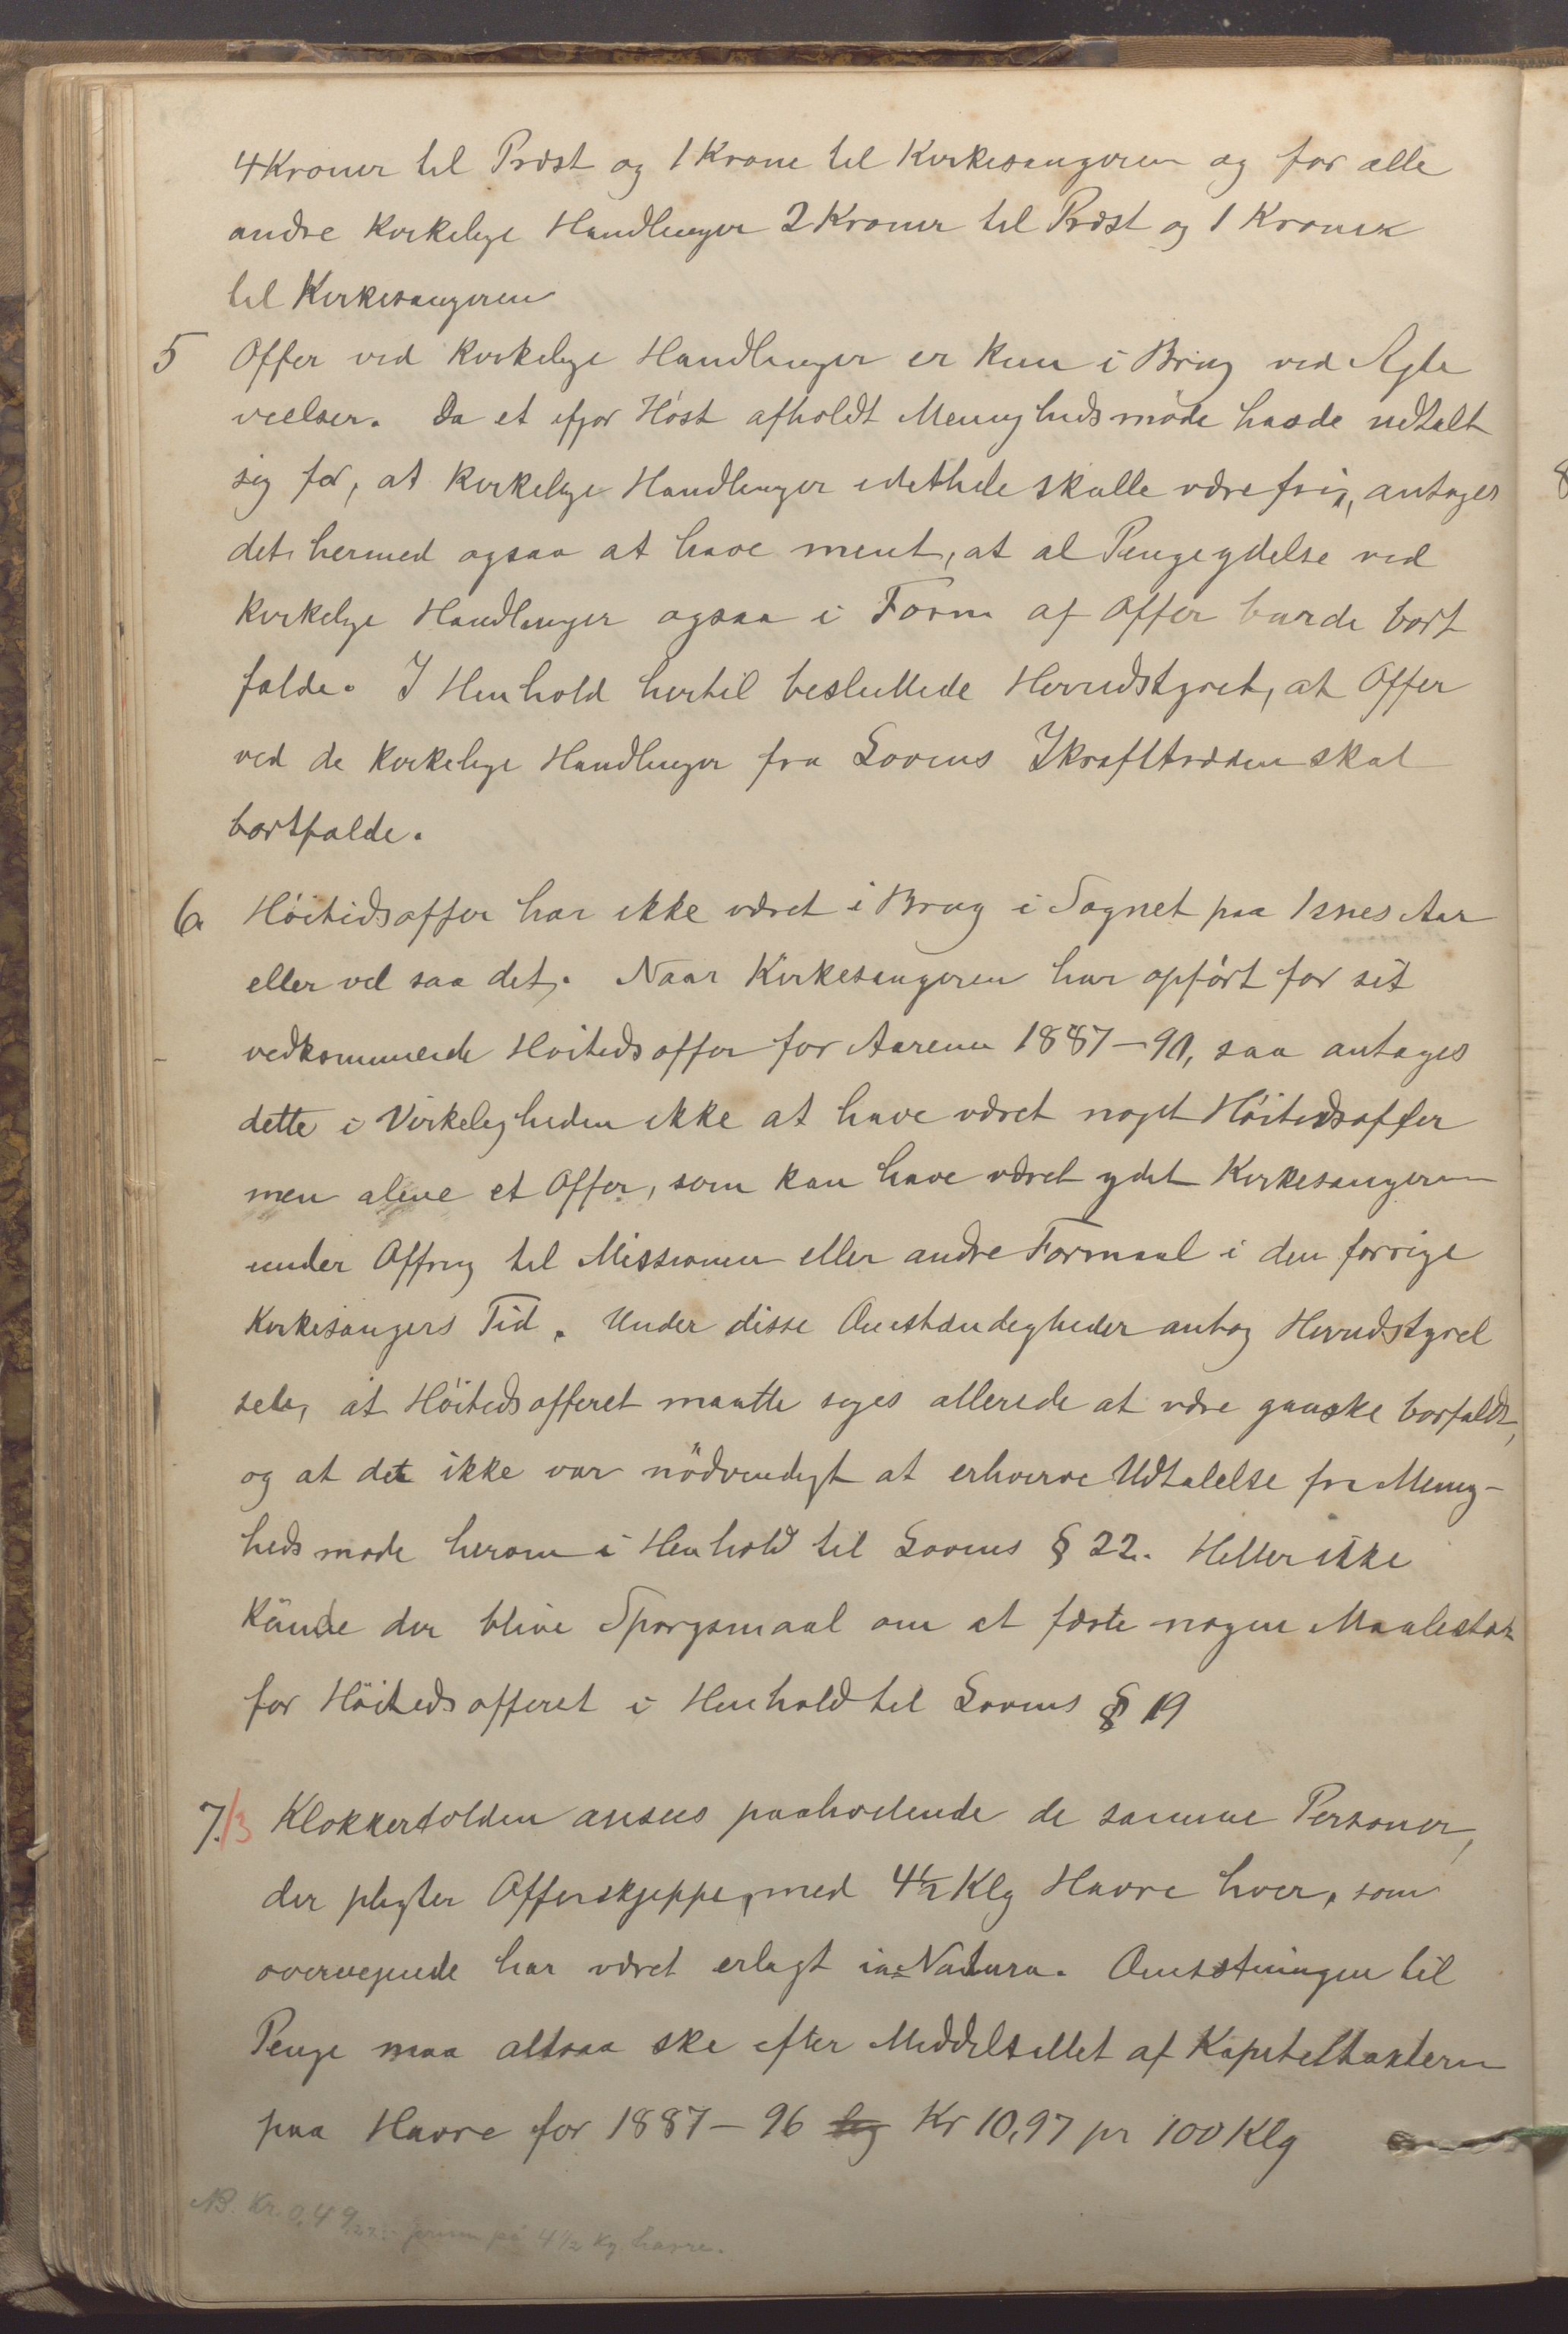 4 Kroner til Præst og 1 Krone til Kirkesangeren og for alle
andre kirkelige Handlinger 2 Kroner til Præst og 1 Krone
til Kirkesangeren
5 Offer ved kirkelige Handlinger er kun i Brug ved Ægte
vielser. Da et ifjor Høst afholdt Menighedsmøde havde udtalt
sig for, at kirkelige Handlinger idethele skulle være fri, antages
det hermed ogsaa at have ment, at al Pengeydelse ved
kirkelige Handlinger ogsaa i Form af Offer burde bort
falde. I Henhold hertil besluttede Herredstyret, at Offer
ved de kirkelige Handlinger fra Lovens Ikrafttræden skal
bortfalde.
6. Høitidsoffer har ikke været i Brug i Sognet paa Aar
eller vel saa det. Naar Kirkesangeren har opført for sit
vedkommende Høitidsoffer for Aarene 1887-90, saa antages
dette i Virkeligheden ikke at have været noget Høitidsoffer
men alene et Offer, som kan have været ydet Kirkesangeren
under Offring til Missionen eller andre Formaal i den forrige
Kirkesangers Tid. Under disse Omstændigheder antog Herredstyrel
sen, at Høitidsofferet maatte siges allerede at være ganske borfaldt,
og at det ikke var nödvendigt at erhverve Udtalelse fra Menig-
heds møde herom i Henhold til Lovens § 22. Heller ikke
kunde der blive Spørgsmaal om at fæste nogen Maalestok
for Høitidsofferet i Henhold til Lovens § 19
7./3 Klokkertolden ansees paahvilende de samme Personer,
der pligter Offerskjeppe, med 4 1/2 Klg Havre hver, som
overveiende har været erlagt in Natura. Omsætningen til
Penge maa altsaa ske efter Middeltallet af Kapiteltaxtern
paa Havre for 1887-96 Kr 10,97 pr 100 Klg
NB. Kr. 0,49 på 4 1/2 kg havre.